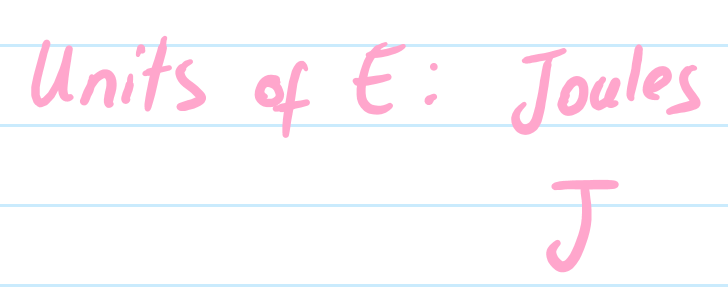 Units of E: Joules
J